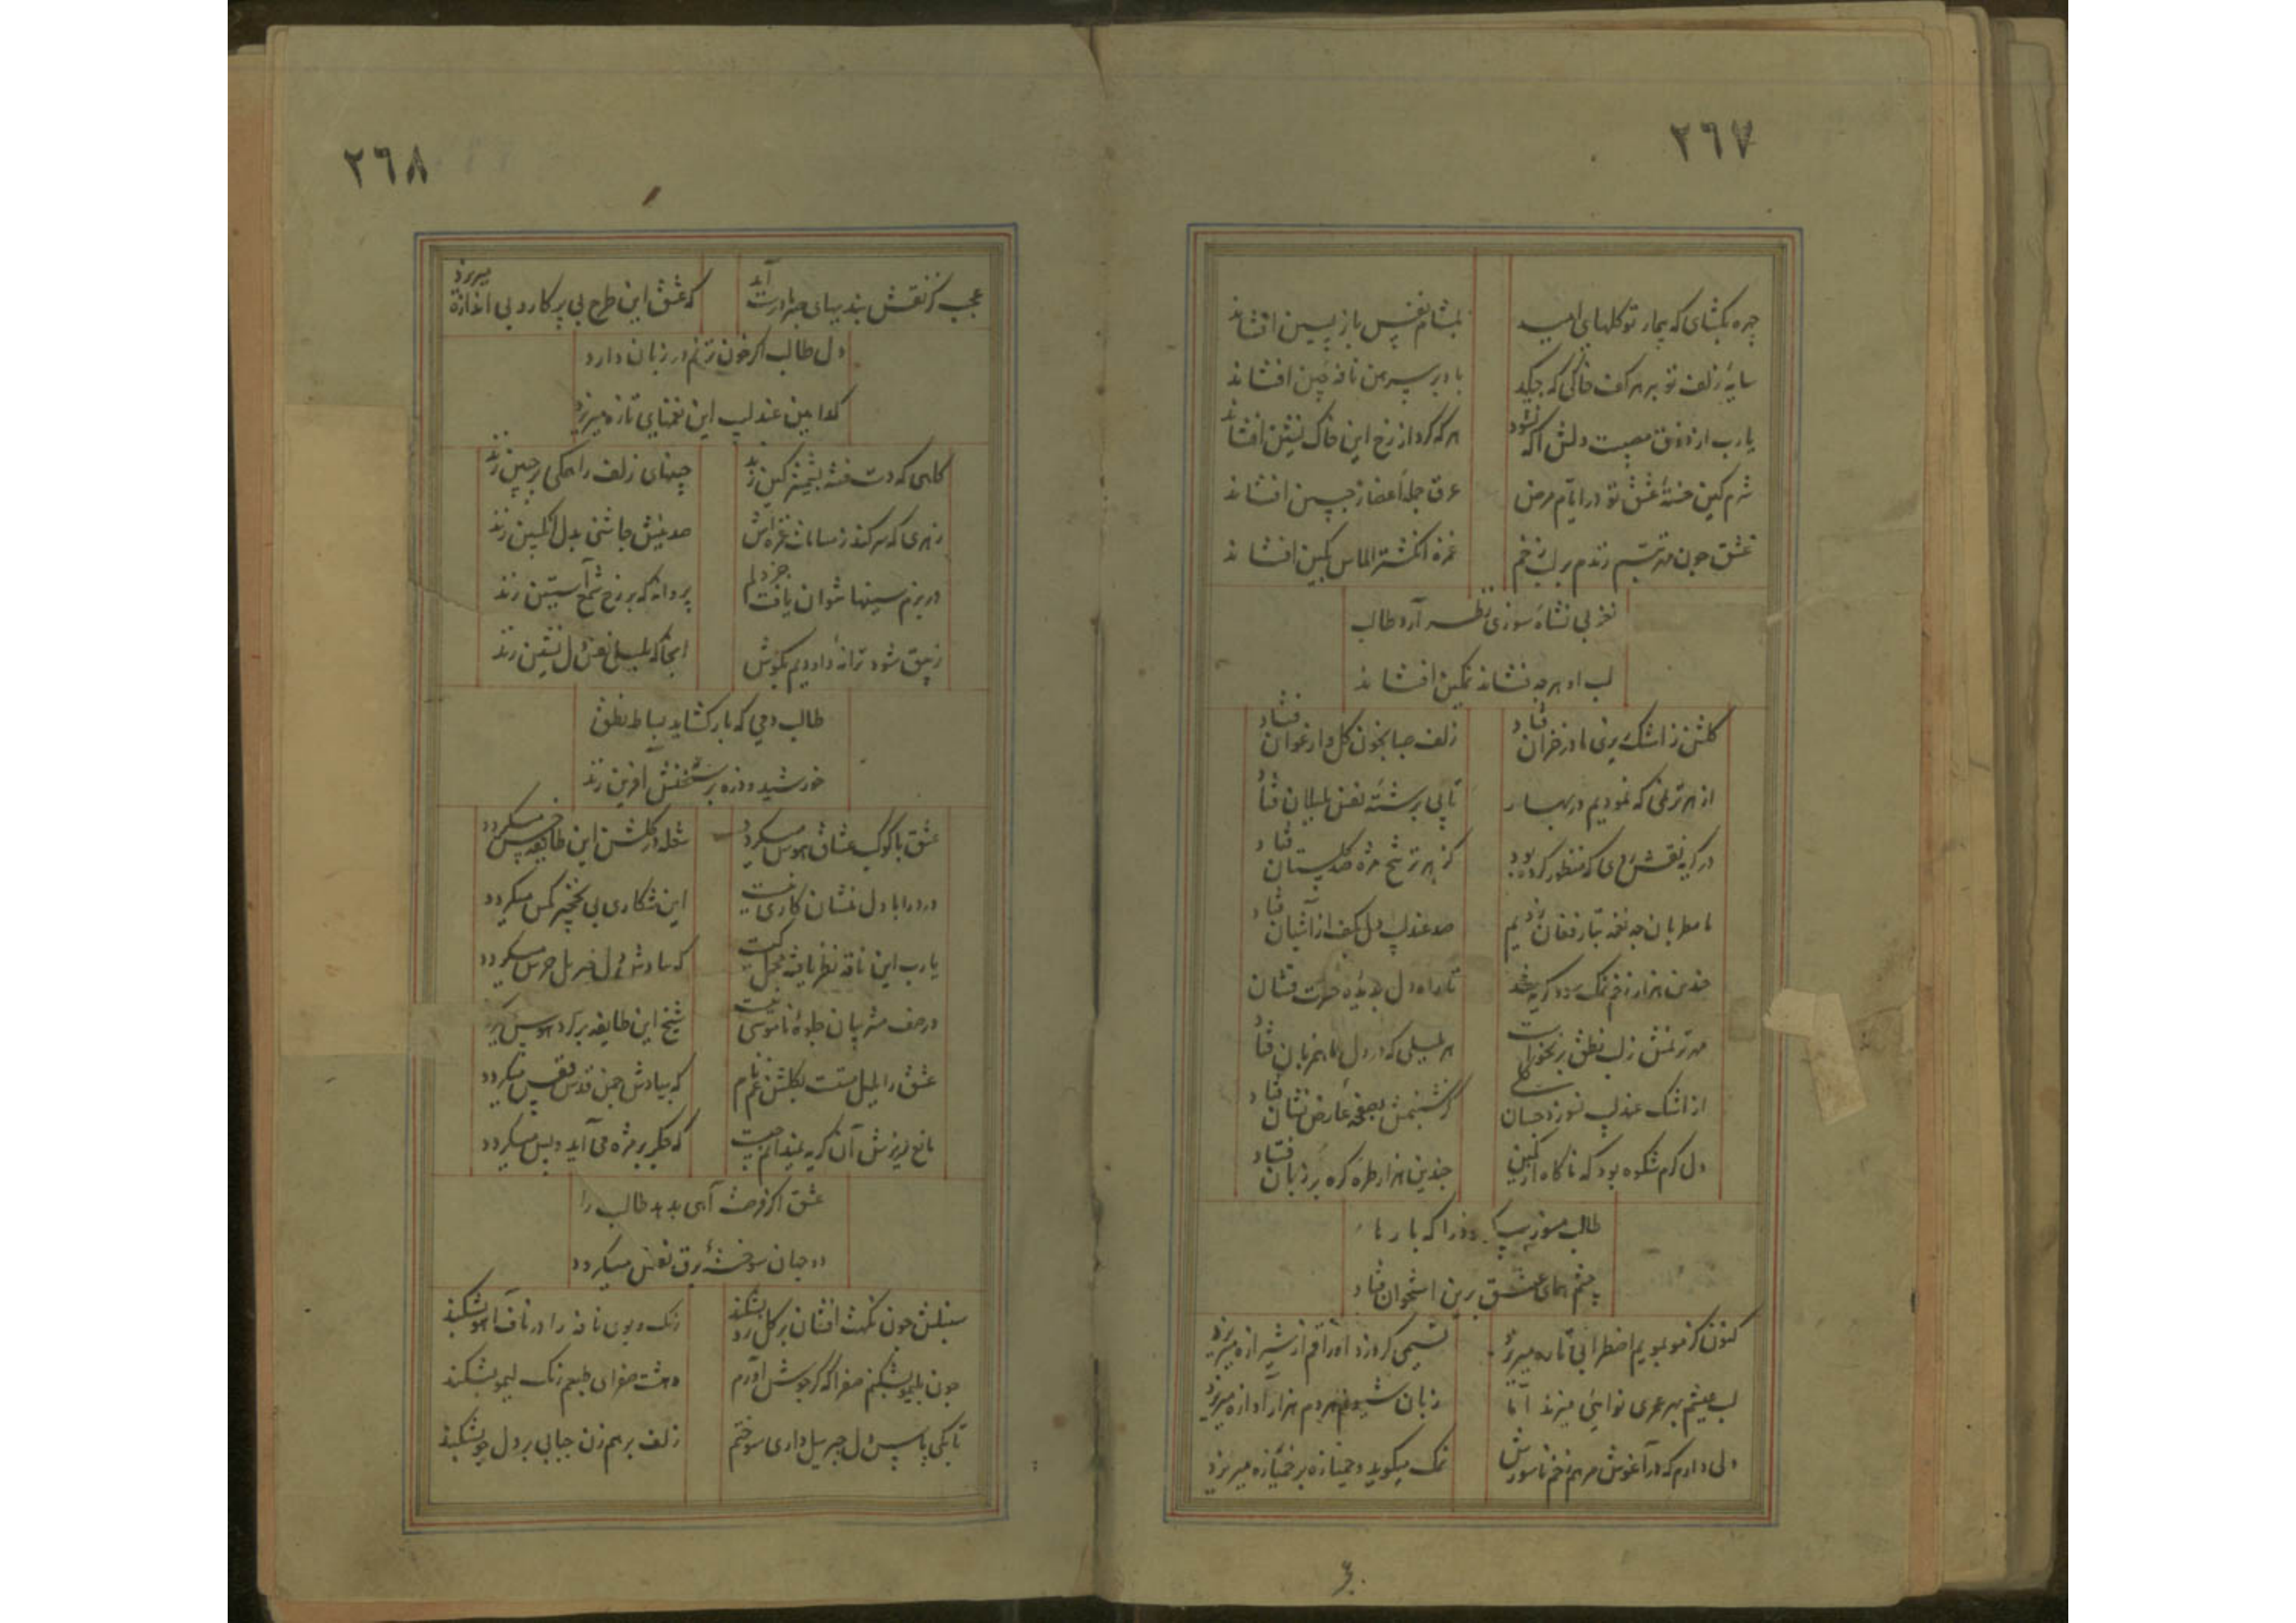 ٢٦٧
چهره بکشای که بیمار تو کلهای امید
بمشام نفس باز پسین افشاند
سایهٔ زلف تو بر هر کف خاکی که چکد
باد بر پیرهن نافهٔ چین افشاند
یارب از ذوق مصیبت دلش آکه نشود
هر که کرد از رخ این خاک نشین افشاند
شرم کین خستهٔ عشق تو در ایام مرض
عرق جمله اعضا ز جبین افشاند
عشق چون مهر تبسم زندم بر لب زخم
غمزه انکشتر الماس نکین افشاند
نغز بی نشاه سوزی نظر آرد طالب
لب او هر چه فشاند نمکین افشاند
کلشن ز اشک ریزی ما در خزان فتاد
زلف صبا بخون کل و ارغوان فتاد
از هر ترنمی که نمودیم در بهار
تابی برشتهٔ نفس بلبلان فتاد
در کریه نقش روی که منظور کرده بود
کز هر ترشح مژه صد کلستان فتاد
ما مطربان چه نغمه بتار فغان زدیم
صد عندلیب دل بکف از آشیان فتاد
چندین هزار زخم نمک سود کریه شد
تا راه دل بدیدهٔ حسرت فشان
مهر ترنمش ز لب نطق بر نخواست
هر بلبلی که در دل ما هم زبان فتاد
از اشک عندلیب نسوزد چسان کلی
کز شبنمش بصفحهٔ عارض نشان فتاد
دل کرم شکوه بود که ناکاه از کمین
چندین هزار طره کره بر زبان فتاد
طالب مسوز پیکر خود را که بارها
چشم همای عشق برین استخوان فتاد
کنون کز مو بمویم اضطرابی تازه میریزد
نسیمی کر وزد اوراقم از شیرازه میریزد
لب عیشم بهر عمری نوایی میزند اما
زبان شیونم هر دم هزار آوازه میریزد
دلی دارم که در آغوش مرهم زخم ناسورش
نمک میکوید و خمیازه بر خمیازه میریزد
٢٦٨
عجب کز نقش بند دیبای چین آید
که عشق این طرح بی پرکار و بی اندازه میریزد
دل طالب اکر خون ترنم در زبان دارد
کدامین عندلیب این نغمهای تازه میریزد
کاهی که دست فتنه بشمشیر کین زند
چینهای زلف را همکی بر جبین زند
زهری که سر کند ز مسامات غمزه اش
صد نیش چاشنی بدل انکبین زند
در بزم سینها نتوان یافت جز دلم
پروانه که بر رخ شمع آستین زند
زیبق شود ترانهٔ داودیم بکوش
آنجا که بلبلی نفس دل نشین زند
طالب دمی که بار کشاید بساط نطق
خورشید و ذره بر سخنش آفرین زند
عشق با کوکب عشاق هوس میکردد
شعله در کلشن این طایفه خس میکردد
درد را با دل غمشان کاری نیست
این شکاری پی نخچیر مکس میکردد
یارب این ناقه نظر یافتهٔ محمل کیست
که بیادش دل جبریل جرس میکردد
در صف مشربیان جلوهٔ ناموسی نیست
شیخ این طایفه بر کرد هوس میکردد
عشق را بلبل مستست بکلشن غم نام
که بیادش چمن قدس قفس میکردد
مانع ریزش آن کریه ندانم چیست
که جکر بر مژه می آید و پس میکردد
عشق اکر فرصت آهی بدهد طالب را
دو جهان سوختهٔ برق نفس میکردد
سنبلش چون نکهت افشان بر کل رو بشکند
رنک و بوی نافه را در ناف آهو بشکند
چون بلیمو بشکنم صفرا که کر جوش آورم
دهشت صفرای طبعم رنک لیمو بشکند
تا بکی پاس دل جبریل داری سوختم
زلف بر هم زن حبابی بر دل جو بشکند